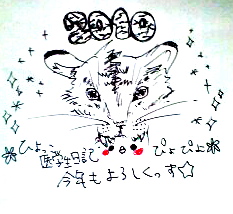 2010
ひよっこ
医学生日記
ぴよぴよ
今年もよろしくっす☆